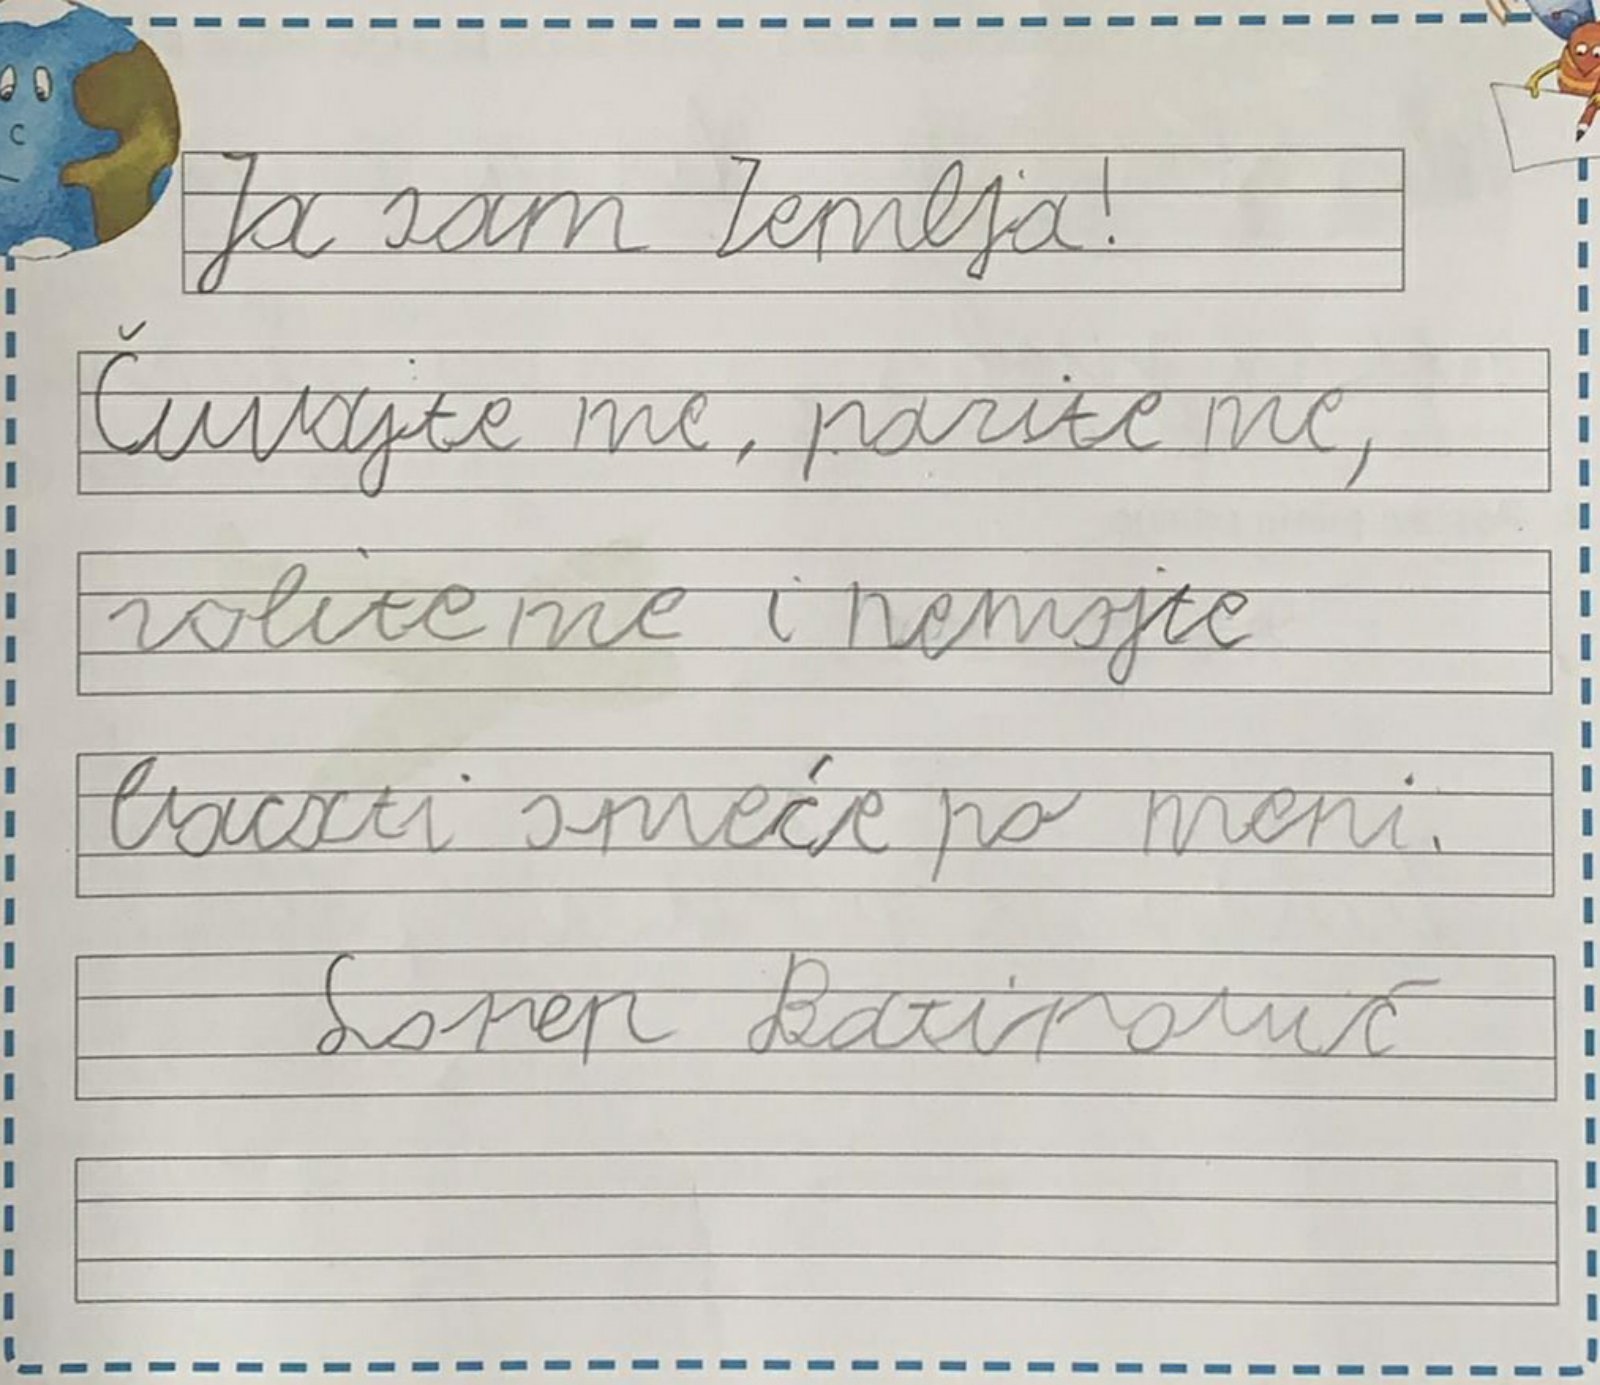 Ja sam Zemlja!
Čuvajte me, pazite me,
volite me i nemojte
bacati smeće po meni.
Loren Batinović